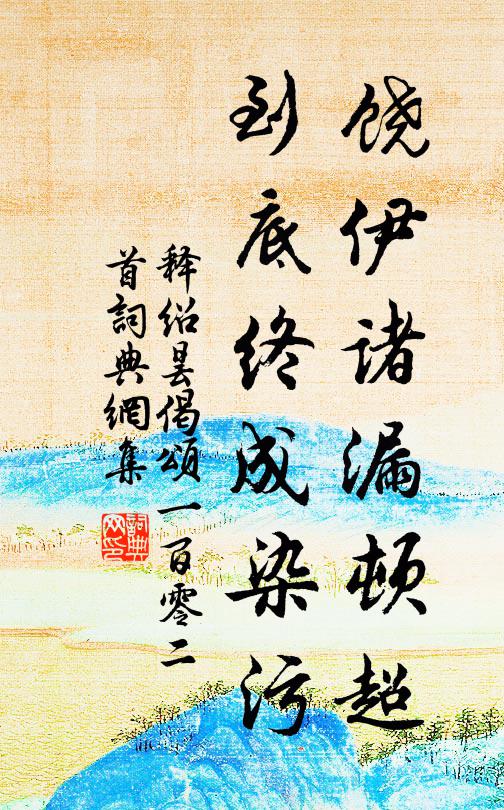 饶伊诸漏顿超
到底终成染污
释绍昙偈颂一百零二
首詞典網集
詞典
网印